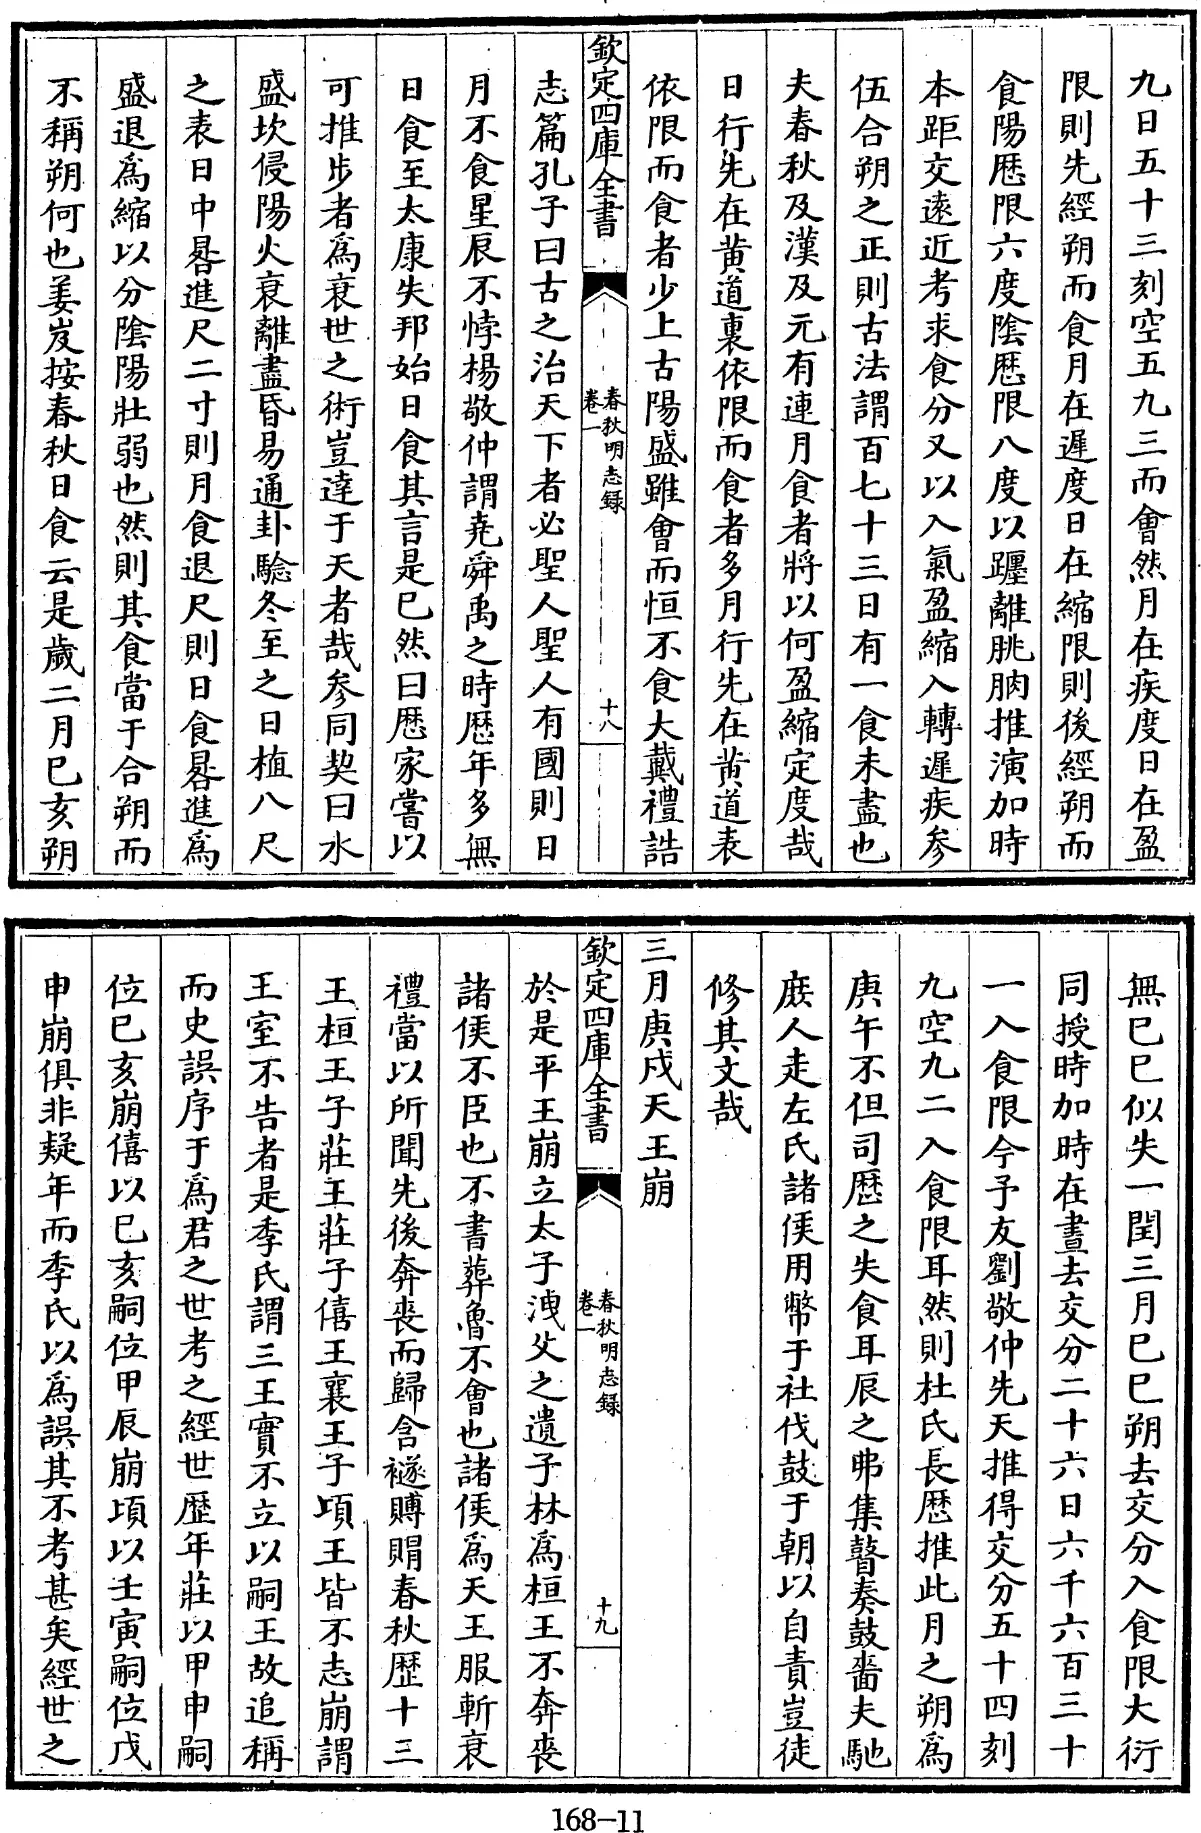 九日五十三刻空五九三而會然月在疾度日在盈
限則先經朔而食月在遲度日在縮限則後經朔而
食陽歷限六度陰歷限八度以躔離朓朒推演加時
本距交遠近考求食分又以入氣盈縮入轉遲疾參
伍合朔之正則古法謂百七十三日有一食未盡也
夫春秋及漢及元有連月食者將以何盈縮定度哉
日行先在黃道裏依限而食者多月行先在黃道表
依限而食者少上古陽盛雖會而恒不食大戴禮誥
欽定四庫全書
春秋明志錄
卷一
十八
志篇孔子曰古之治天下者必聖人聖人有國則日
月不食星辰不悖楊敬仲謂堯舜禹之時歷年多無
日食至太康失邦始日食其言是已然曰歷家嘗以
可推步者為衰世之術豈達于天者哉參同契曰水
盛坎侵陽火衰離晝昏易通卦驗冬至之日植八尺
之表日中晷進尺二寸則月食退尺則日食晷進為
盛退為縮以分陰陽壯弱也然則其食當于合朔而
不稱朔何也姜岌按春秋日食云是歲二月已亥朔
無已巳似失一閏三月已巳朔去交分入食限大衍
同授時加時在晝去交分二十六日六千六百三十
一入食限今予友劉敬仲先天推得交分五十四刻
九空九二入食限耳然則杜氏長歷推此月之朔為
庚午不但司歷之失食耳辰之弗集瞽奏鼓嗇夫馳
庶人走左氏諸侯用幣于社伐鼓于朝以自責豈徒
修其文哉
三月庚戌天王崩
欽定四庫全書
春秋明志錄
卷一
十九
於是平王崩立太子洩父之遺子林為桓王不奔喪
諸侯不臣也不書葬魯不會也諸侯為天王服斬衰
禮當以所聞先後奔喪而歸含襚賻賵春秋歷十三
王桓王子莊王莊子僖王襄王子頃王皆不志崩謂
王室不告者是季氏謂三王實不立以嗣王故追稱
而史誤序于為君之世考之經世歷年莊以甲申嗣
位已亥崩僖以已亥嗣位甲辰崩頃以壬寅嗣位戊
申崩俱非疑年而季氏以為誤其不考甚矣經世之
168-11